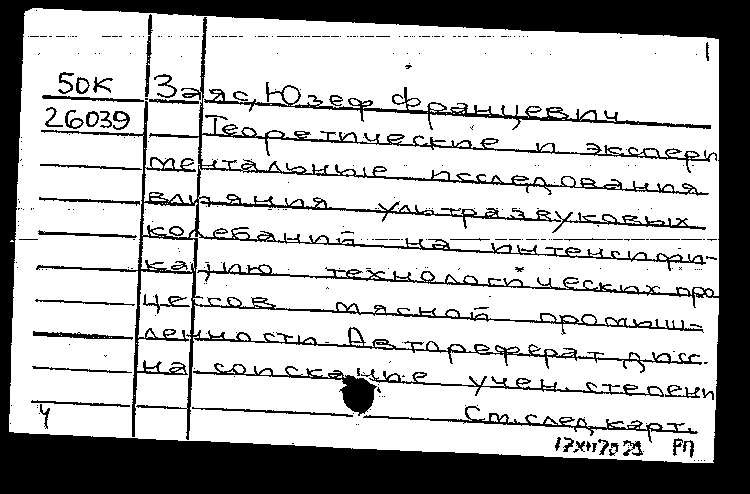 50К Заяс, Юзеф Францевич
26039 Теоретические и экспери
ментальные исследования
влияния ультразвуковых
колебаний на интенсифи-
кацию технологических про
цессов мясной промыш-
ленности. Автореферат дисс.
на соискание учен. степени
См. след. карт.
РП